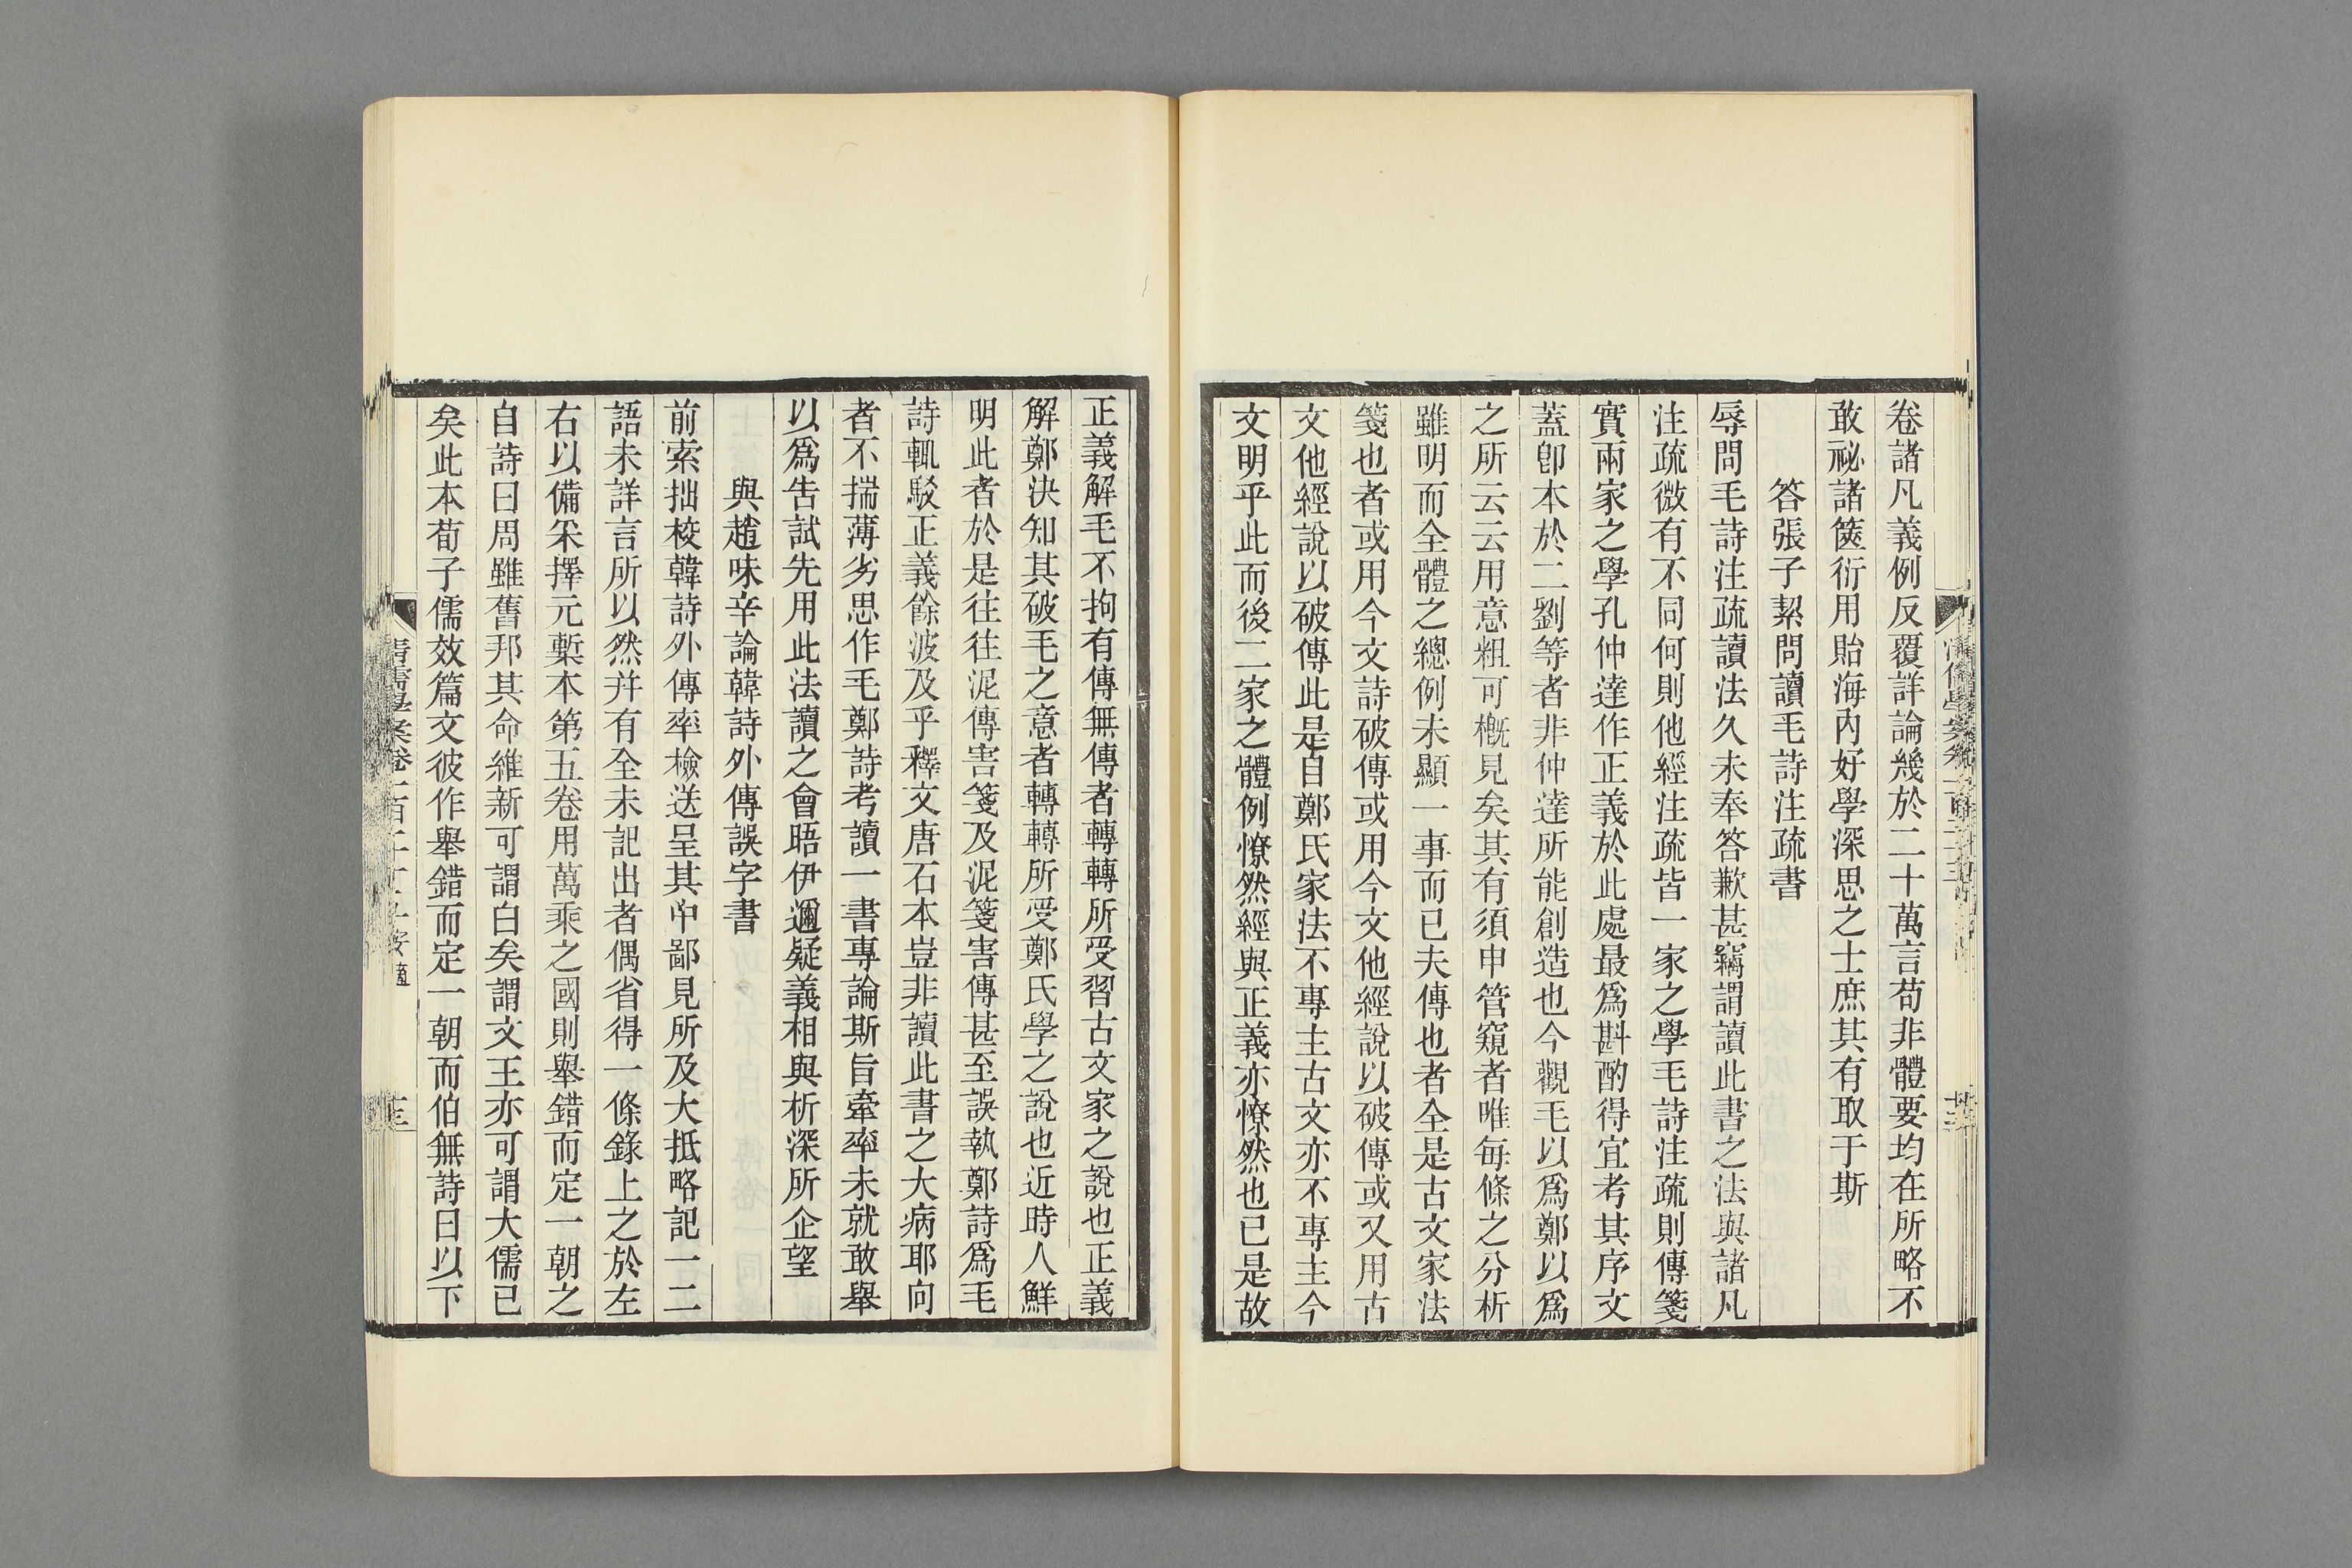 卷諸凡義例反覆詳論幾於二十萬言苟非體要均在所略不
敢祕諸篋衍用貽海內好學深思之士庶其有取于斯
答張子絜問讀毛詩注疏書
辱問毛詩注疏讀法久未奉答歉甚竊謂讀此書之法與諸凡
注疏微有不同何則他經注疏皆一家之學毛詩注疏則傳箋
實兩家之學孔仲達作正義於此處最爲斟酌得宜考其序文
蓋卽本於二劉等者非仲達所能創造也今觀毛以爲鄭以爲
之所云云用意粗可槪見矣其有須申管窺者唯每條之分析
雖明而全體之總例未顯一事而已夫傳也者全是古文家法
箋也者或用今文詩破傳或用今文他經說以破傳或又用古
文他經說以破傳此是自鄭氏家法不專主古文亦不專主今
文明乎此而後二家之體例憭然經與正義亦憭然也已是故
正義解毛不拘有傳無傳者轉轉所受習古文家之說也正義
解鄭決知其破毛之意者轉轉所受鄭氏學之說也近時人鮮
明此者於是往往泥傳害箋及泥箋害傳甚至誤執鄭詩爲毛
詩輒駁正義餘波及乎釋文唐石本豈非讀此書之大病耶向
者不揣薄劣思作毛鄭詩考讀一書專論斯旨牽率未就敢舉
以爲告試先用此法讀之會晤伊邇疑義相與析深所企望
與趙味辛論韓詩外傳誤字書
前索拙校韓詩外傳率檢送呈其中鄙見所及大抵略記一二
語未詳言所以然幷有全未記出者偶省得一條錄上之於左
右以備采擇元槧本第五卷用萬乘之國則舉錯而定一朝之
自詩曰周雖舊邦其命維新可謂白矣謂文王亦可謂大儒已
矣此本荀子儒效篇文彼作舉錯而定一朝而伯無詩曰以下
清儒學案卷一百二十